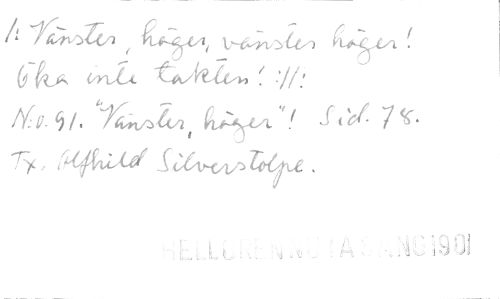 /: Vänster, höger, vänster höger!
Öka inte takten! ://:
N:o. 91. "Vänster, höger"! Sid. 78.
Tx. Alfhild Silverstolpe.
HELLGREN NU TA SÅNG 1901